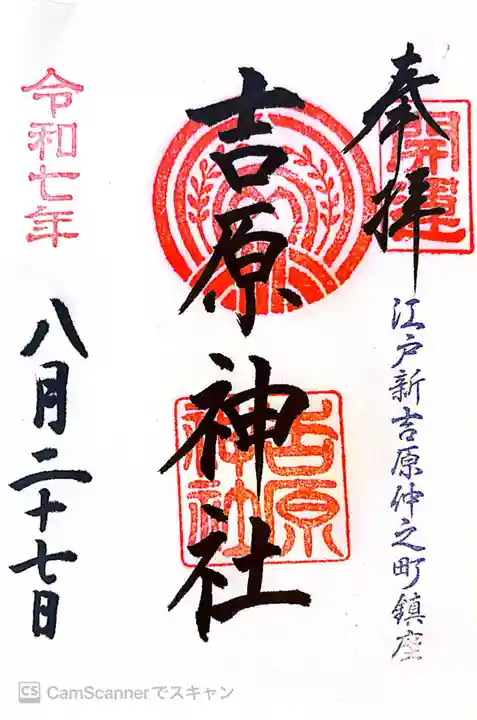 奉拝
開運
江戸新吉原仲之町鎮座
吉原神社
吉原
神社
令和七年
八月二十七日
CS CamScannerでスキャン